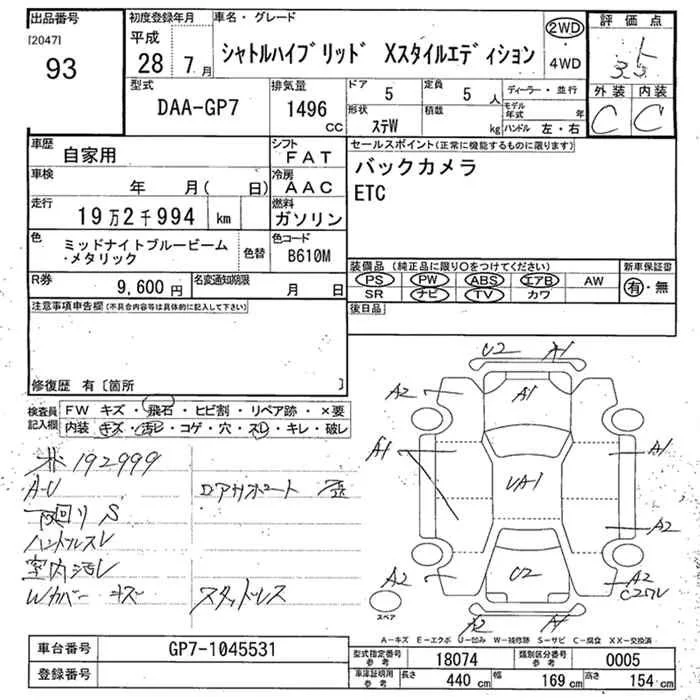 出品番号
[2047]
93
初度登録年月
平成
28年 7月
車名・グレード
シャトルハイブリッド Xスタイルエディション
2WD
・
4WD
評価点
3.5
外装 内装
C C
型式
DAA-GP7
排気量
1496
CC
ドア 5
定員 5 人
形状 ステW
積載 kg
ディーラー・並行
モデル年式 年
ハンドル 左・右
車歴 自家用
シフト FAT
車検 年 月( 日)
冷房 AAC
走行 19万2千994 km
燃料 ガソリン
色 ミッドナイトブルービーム・メタリック
色替
色コード B610M
R券 9,600円
名変通知期限 月 日
セールスポイント(正常に機能するものに限ります)
バックカメラ
ETC
装備品 (純正品に限り○をつけてください)
新車保証書
PS PW ABS エアB AW
SR ナビ TV カワ
有・無
後日品
注意事項申告欄(不具合内容等は具体的に記入して下さい)
修復歴 有〔箇所 〕
検査員記入欄
FW キズ・飛石・ヒビ割・リペア跡・×要
内装 キズ・汚レ・コゲ・穴・スレ・キレ・破レ
192999
A-U
ロアサポート
下回りS
ハンドルスレ
室内汚レ
Wカバーキズ
スタットレス
C2 A1
A2 A1
A1 UA1 A1
A2
A2 C2 A2
A2
スペア
A-キズ E-エクボ U-凹み W-補修跡 S-サビ C-腐食 XX-交換済
車台番号 GP7-1045531
登録番号
型式指定番号 参考 18074
類別区分番号 参考 0005
車庫証明用 参考
長さ 440 cm
幅 169 cm
高さ 154 cm